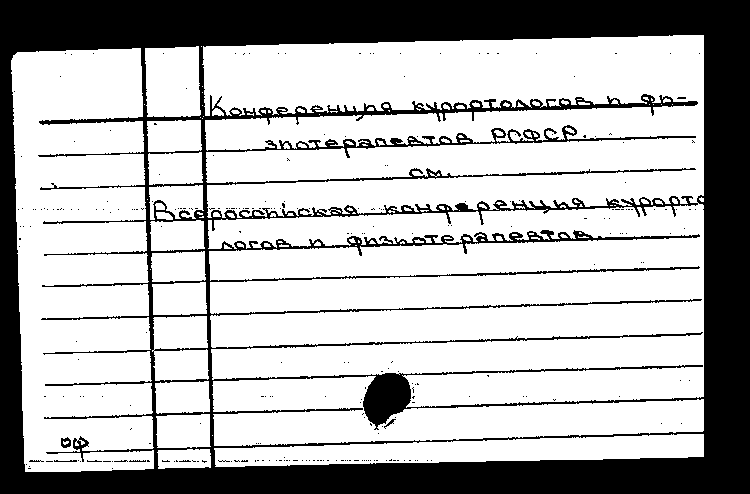 Конференция курортологов и фи-
зиотерапевтов РСФСР.
см.
Всероссийская конференция курорто
логов и физиотерапевтов.
оф